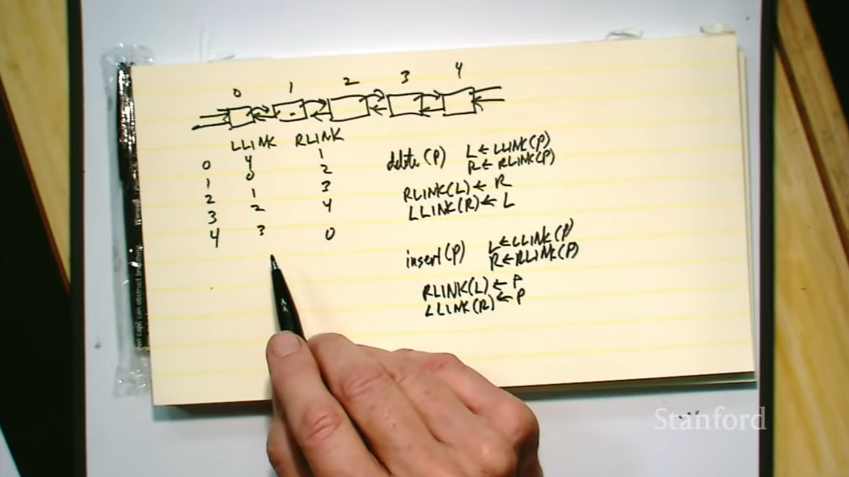 0 1 2 3 4
LLINK RLINK
0 4 1
1 0 2
2 1 3
3 2 4
4 3 0
delete(P) L ← LLINK(P)
R ← RLINK(P)
RLINK(L) ← R
LLINK(R) ← L
insert(P) L ← LLINK(P)
R ← RLINK(P)
RLINK(L) ← P
LLINK(R) ← P
Stanford